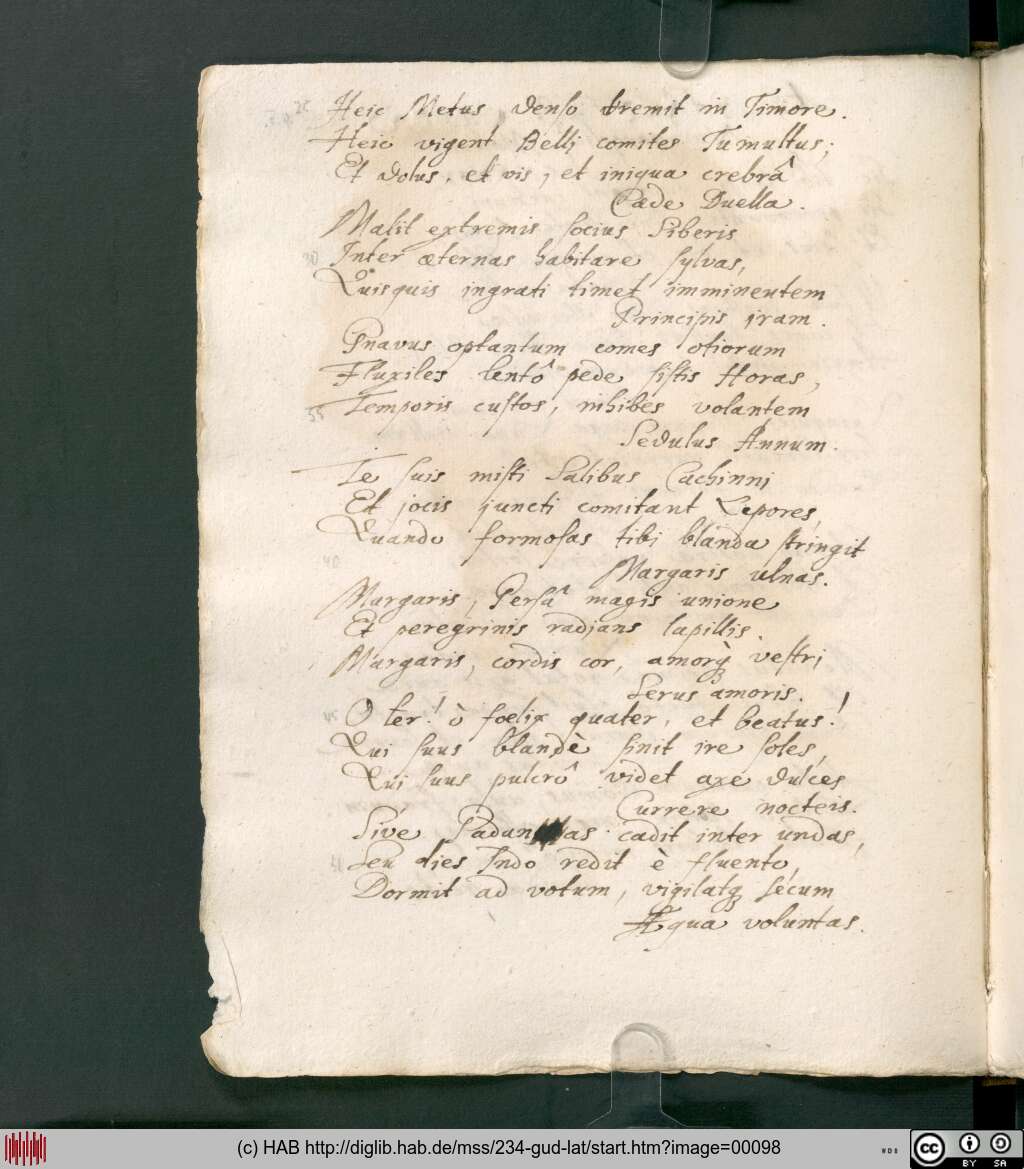 Heic Metus denso tremit in Timore.
Heic vigent Belli comites Tumultus;
Et dolus, et vis, et iniqua crebrâ
Cæde Duella.
Malit extremis socius Siberis
Inter æternas habitare sylvas,
Quisquis ingrati timet imminentem
Principis iram.
Gnavus optantum comes otiorum
Fluxiles lentô pede sistis Horas,
35 Temporis custos, inhibes volantem
Sedulus Annum.
Te suis misti Salibus Cachinni
Et jocis juncti comitant Lepores,
Quando formosas tibi blanda stringit
40
Margaris ulnas.
Margaris, Persâ magis unione
Et peregrinis radians lapillis.
Margaris, cordis cor, amorq; vestri
Serus amoris.
O ter! ò foelix quater, et beatus!
Qui suus blandè sinit ire soles,
Qui suus pulcrô videt axe dulces
Currere nocteis.
Sive Paduanas cadit inter undas,
Seu dies Indo redit è fluento
Dormit ad votum, vigilatq; secum
Æqua voluntas.
(c) HAB http://diglib.hab.de/mss/234-gud-lat/start.htm?image=00098
WDB
cc
BY SA